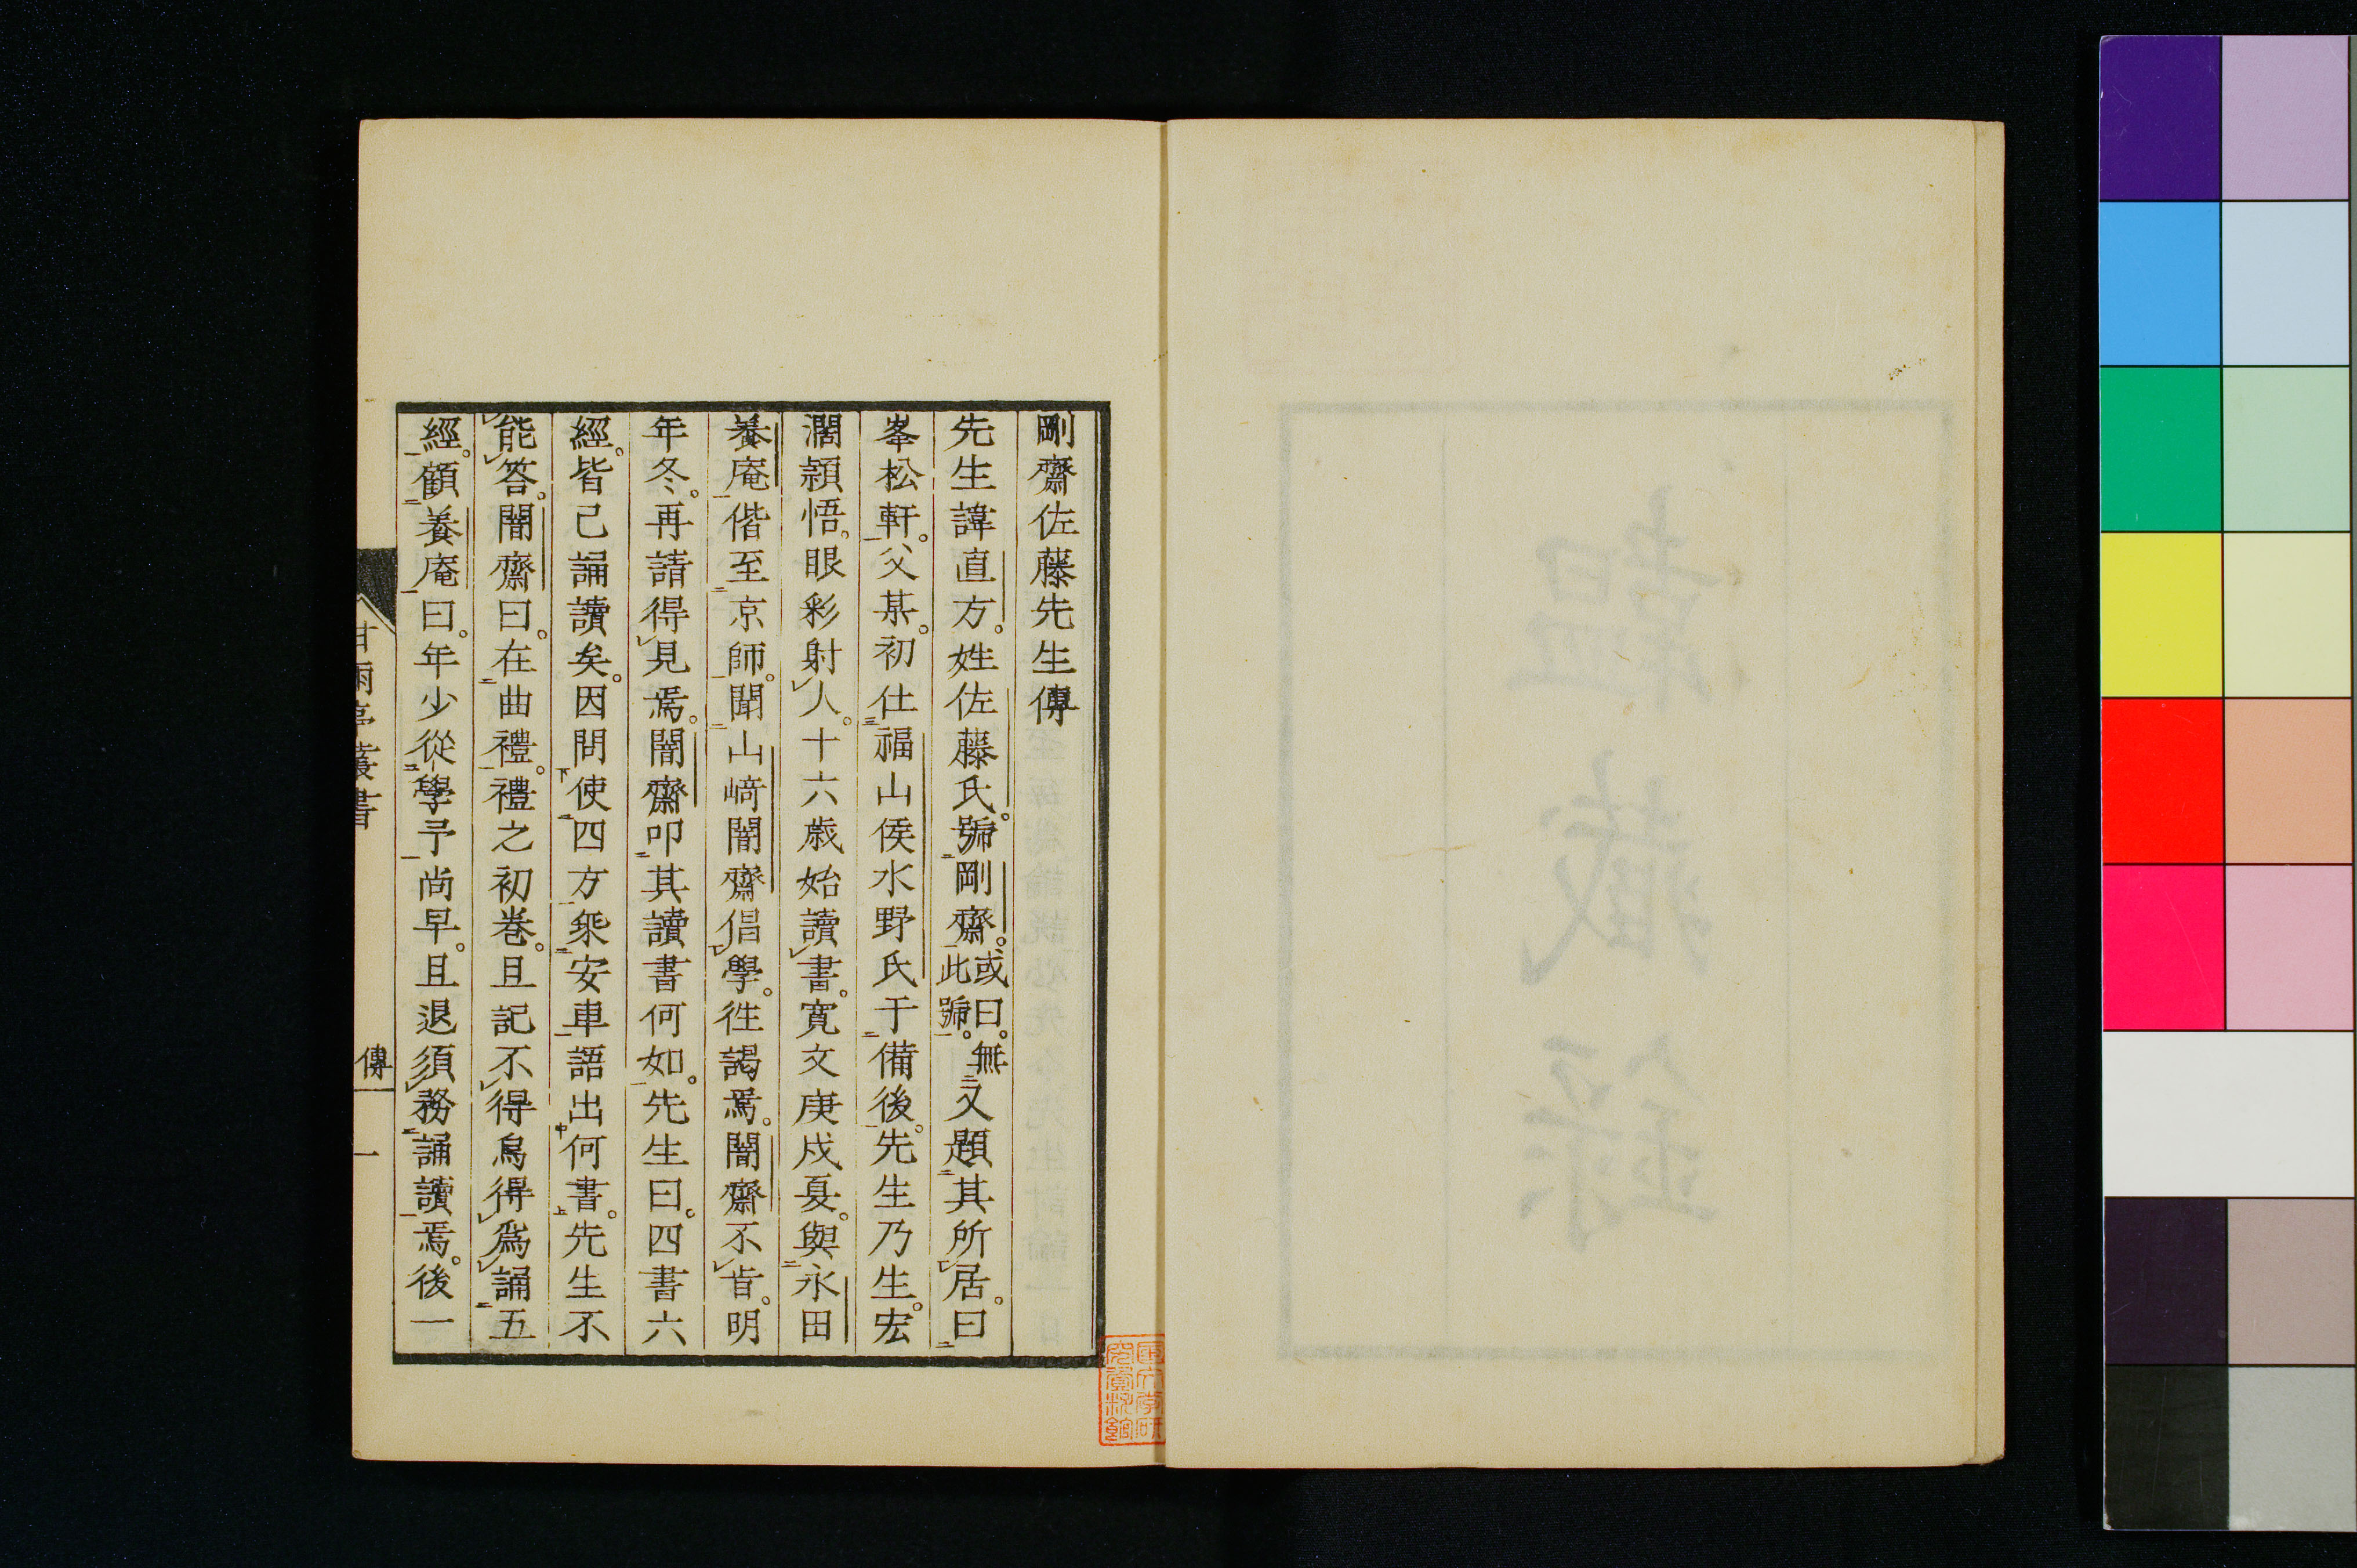 剛齋佐藤先生傳
先生諱直方。姓佐藤氏。號剛齋。或曰。無此號。又題其所居。曰
峯松軒。父某。初仕福山侯水野氏于備後。先生乃生。宏
濶頴悟。眼彩射人。十六歲始讀書。寛文庚戌夏。與永田
養庵偕至京師。聞山﨑闇齋倡學。徃謁焉。闇齋不肯。明
年冬。再請得見焉。闇齋叩其讀書何如。先生曰。四書六
經。皆已誦讀矣。因問使四方乘安車語出何書。先生不
能答。闇齋曰。在曲禮。禮之初卷。且記不得烏得爲誦五
經。顧養庵曰。年少從學予尚早。且退須務誦讀焉。後一
甘雨亭叢書
傳
一